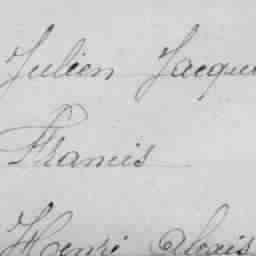 Julien Jacque
Francis
Henri Alexis